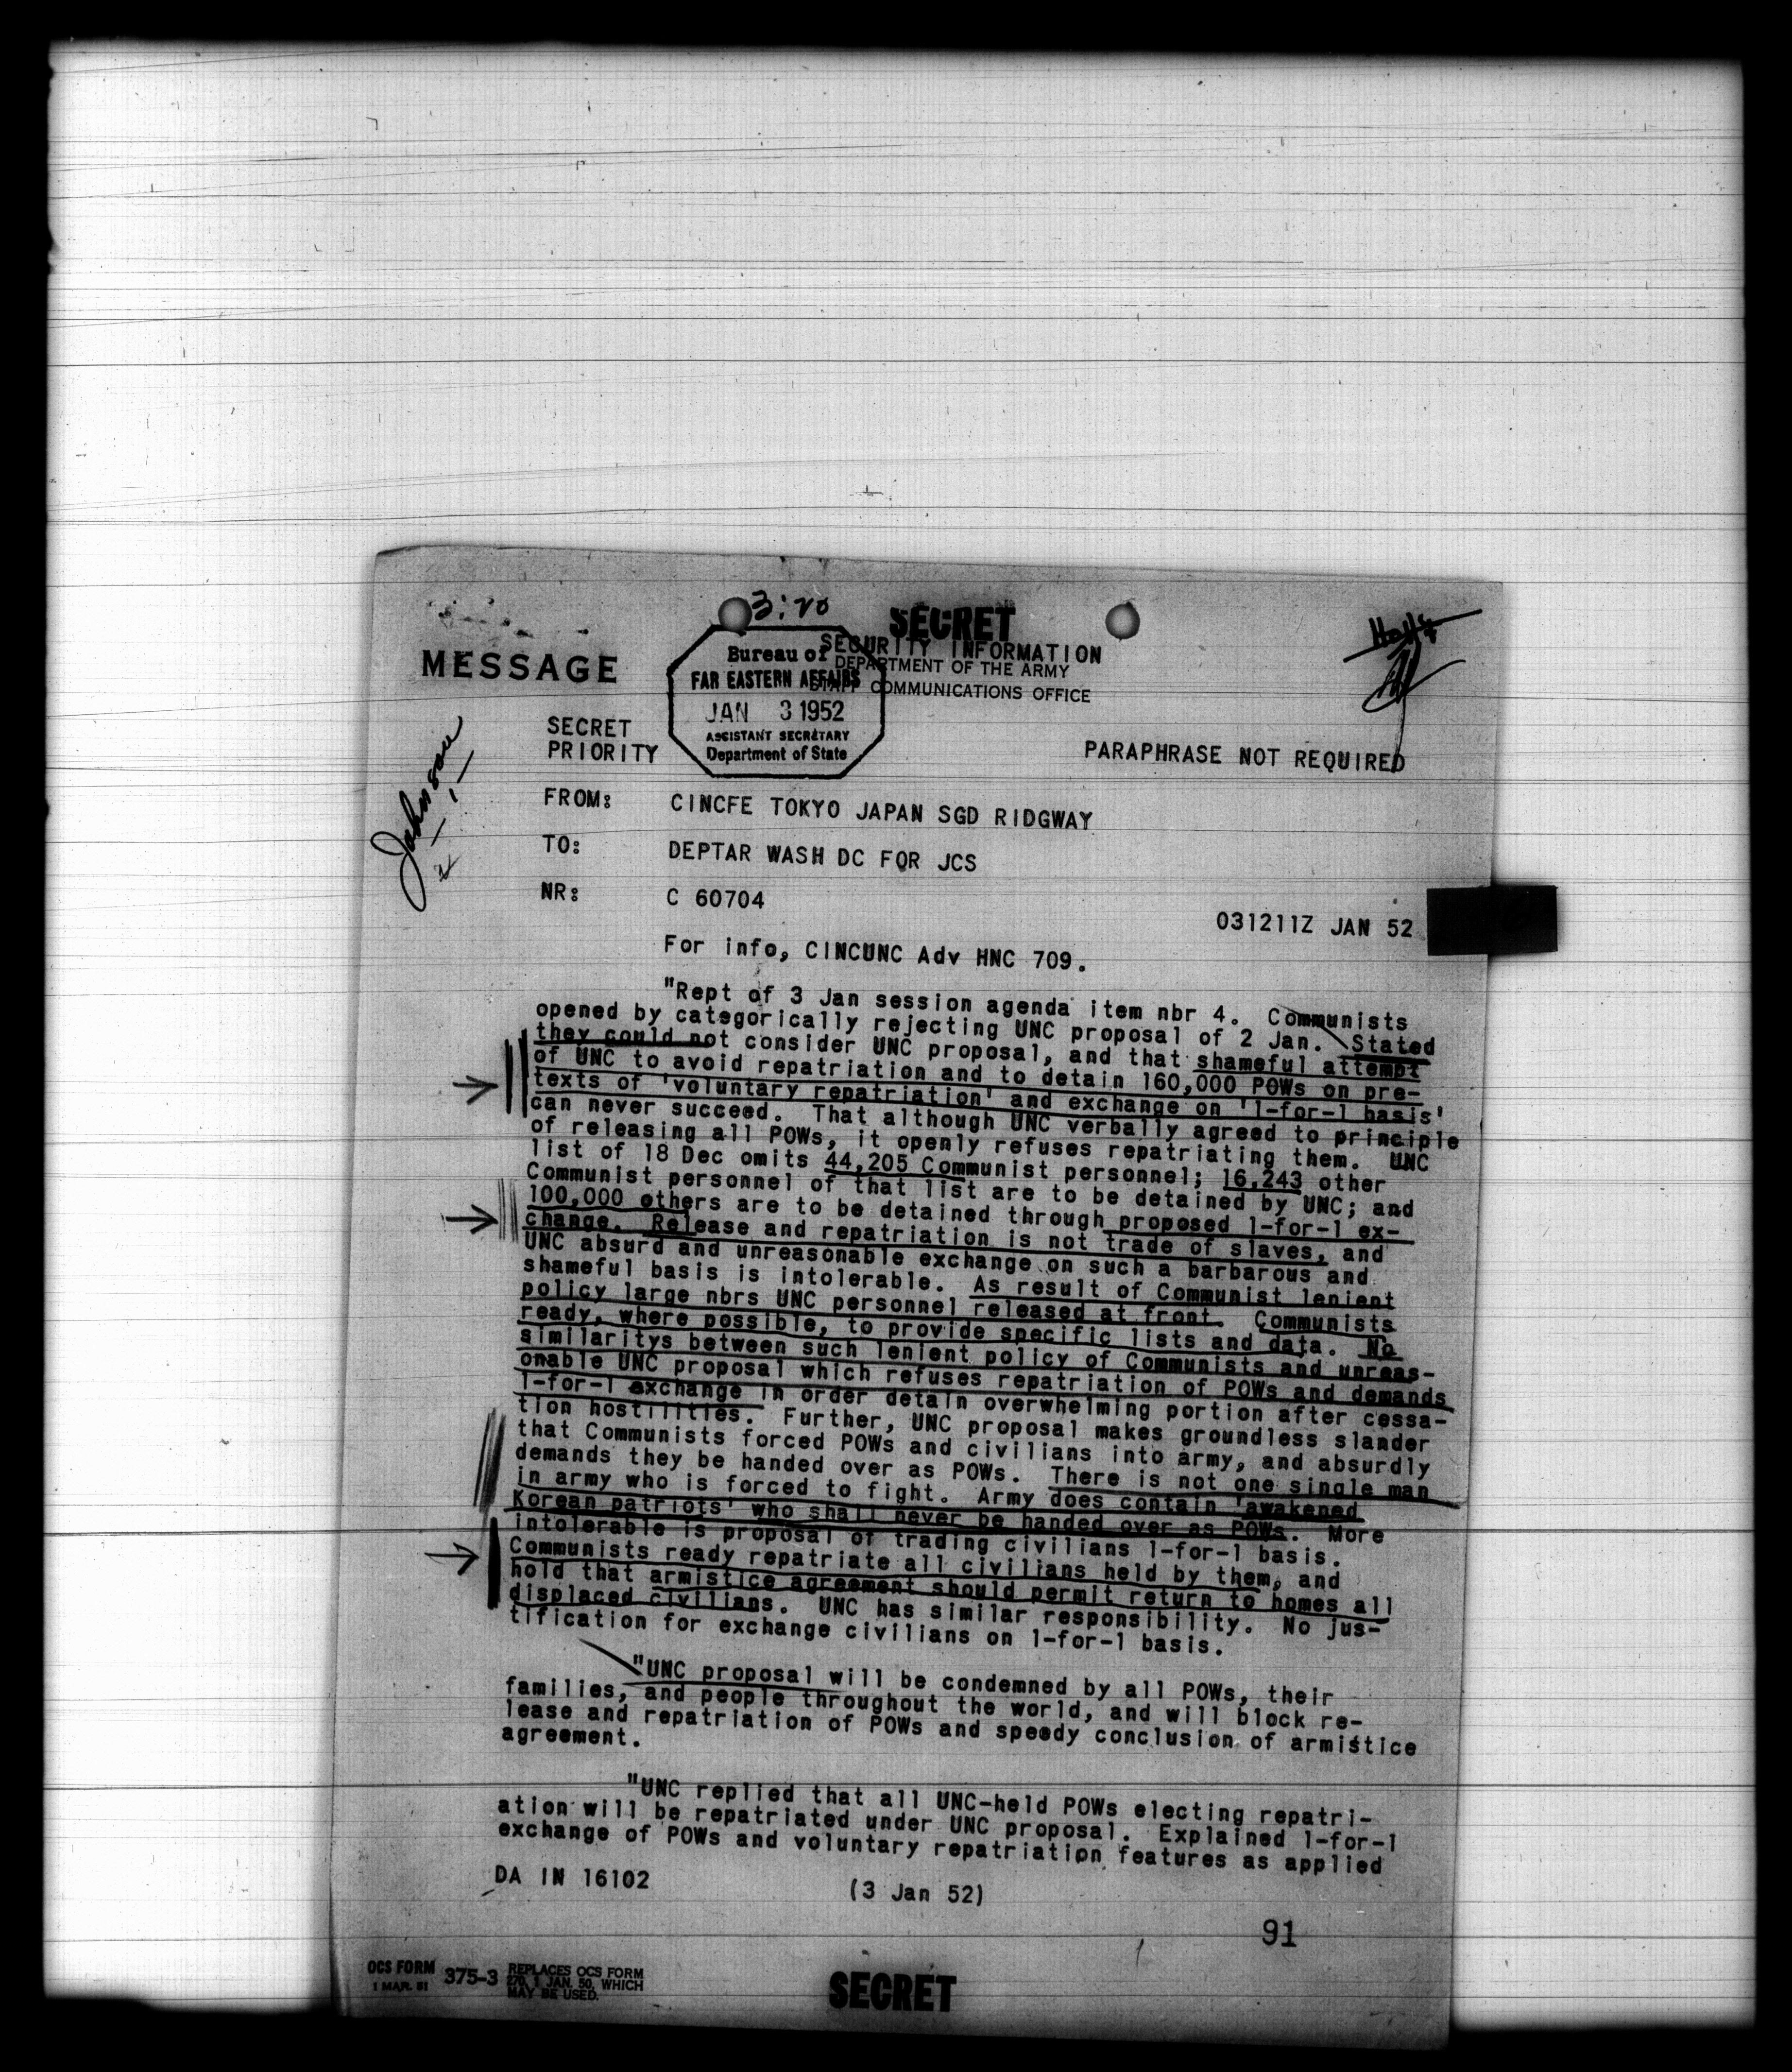 3:20
SECRET
SECURITY INFORMATION
MESSAGE
DEPARTMENT OF THE ARMY
STAFF COMMUNICATIONS OFFICE
Bureau of
FAR EASTERN AFFAIRS
JAN 3 1952
ASSISTANT SECRETARY
Department of State
Johnson
SECRET
PRIORITY
PARAPHRASE NOT REQUIRED
FROM: CINCFE TOKYO JAPAN SGD RIDGWAY
TO: DEPTAR WASH DC FOR JCS
NR: C 60704
031211Z JAN 52
For info, CINCUNC Adv HNC 709.
"Rept of 3 Jan session agenda item nbr 4. Communists
opened by categorically rejecting UNC proposal of 2 Jan. Stated
they could not consider UNC proposal, and that shameful attempt
of UNC to avoid repatriation and to detain 160,000 POWs on pre-
texts of 'voluntary repatriation' and exchange on '1-for-1 basis'
can never succeed. That although UNC verbally agreed to principle
of releasing all POWs, it openly refuses repatriating them. UNC
list of 18 Dec omits 44,205 Communist personnel; 16,243 other
Communist personnel of that list are to be detained by UNC; and
100,000 others are to be detained through proposed 1-for-1 ex-
change. Release and repatriation is not trade of slaves, and
UNC absurd and unreasonable exchange on such a barbarous and
shameful basis is intolerable. As result of Communist lenient
policy large nbrs UNC personnel released at front. Communists
ready, where possible, to provide specific lists and data. No
similaritys between such lenient policy of Communists and unreas-
onable UNC proposal which refuses repatriation of POWs and demands
1-for-1 exchange in order detain overwhelming portion after cessa-
tion hostilities. Further, UNC proposal makes groundless slander
that Communists forced POWs and civilians into army, and absurdly
demands they be handed over as POWs. There is not one single man
in army who is forced to fight. Army does contain 'awakened
Korean patriots' who shall never be handed over as POWs. More
intolerable is proposal of trading civilians 1-for-1 basis.
Communists ready repatriate all civilians held by them, and
hold that armistice agreement should permit return to homes all
displaced civilians. UNC has similar responsibility. No jus-
tification for exchange civilians on 1-for-1 basis.
"UNC proposal will be condemned by all POWs, their
families, and people throughout the world, and will block re-
lease and repatriation of POWs and speedy conclusion of armistice
agreement.
"UNC replied that all UNC-held POWs electing repatri-
ation will be repatriated under UNC proposal. Explained 1-for-1
exchange of POWs and voluntary repatriation features as applied
DA IN 16102 (3 Jan 52)
91
OCS FORM 375-3 REPLACES OCS FORM
1 MAR. 51 270, 1 JAN. 50, WHICH
MAY BE USED.
SECRET